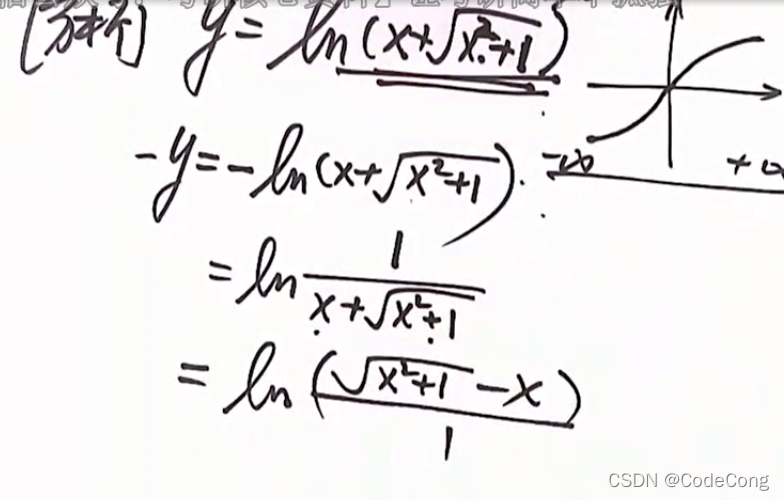 [分析] y = ln(x+√(x²+1))
-y = -ln(x+√(x²+1)).
-∞ +∞
= ln 1/(x+√(x²+1))
= ln (√(x²+1) - x)/1
CSDN @CodeCong